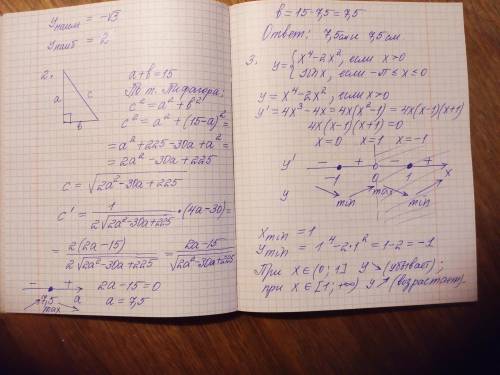 yнаим = -√3
yнаиб = 2
2.
a
c
b
a+b=15
По т. Пифагора:
c² = a² + b²
c² = a² + (15-a)² =
= a² + 225 - 30a + a² =
= 2a² - 30a + 225
c = √(2a² - 30a + 225)
c' = 1/(2√(2a² - 30a + 225)) · (4a - 30) =
= 2(2a - 15)/(2√(2a² - 30a + 225)) = (2a - 15)/√(2a² - 30a + 225)
2a - 15 = 0
a = 7,5
- +
7,5 a
max
b = 15 - 7,5 = 7,5
Ответ: 7,5 см и 7,5 см
3. y = { x⁴ - 2x², если x>0
sin x, если -π ≤ x ≤ 0
y = x⁴ - 2x², если x>0
y' = 4x³ - 4x = 4x(x² - 1) = 4x(x-1)(x+1)
4x(x-1)(x+1) = 0
x=0 x=1 x=-1
y' - + - +
-1 0 1 x
y min max min
xmin = 1
ymin = 1⁴ - 2·1² = 1 - 2 = -1
При x ∈ (0; 1] y ↘ (убывает);
при x ∈ [1; +∞) y ↗ (возрастает).